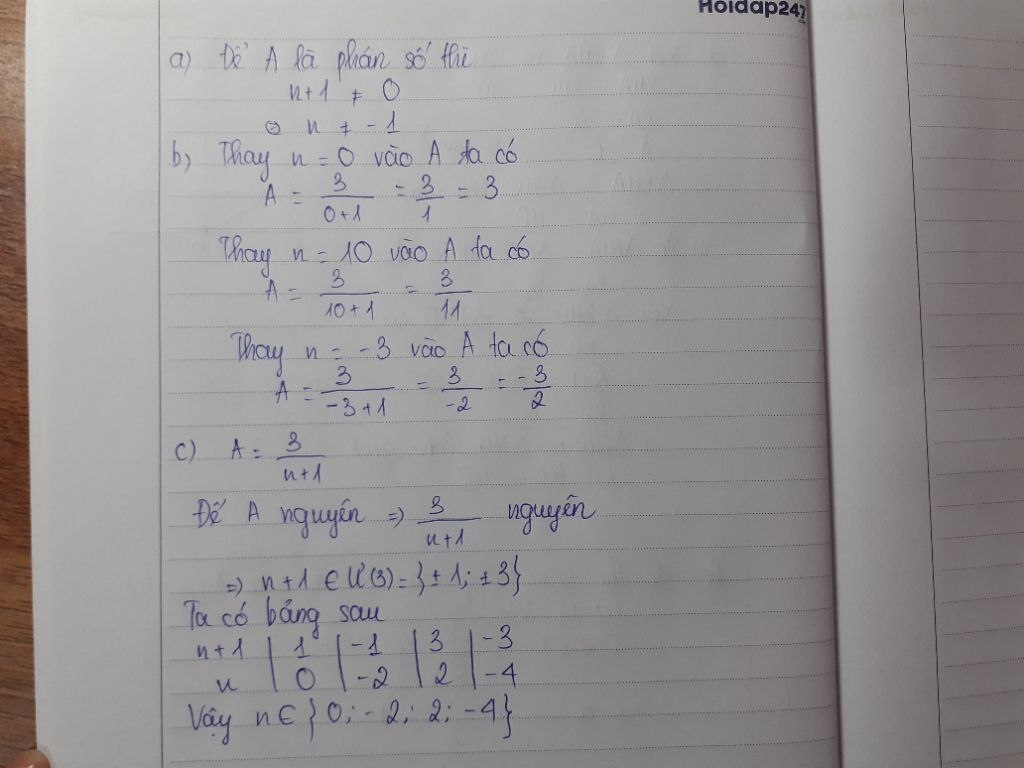 Hoidap247
a) Để A là phân số thì
n+1 ≠ 0
⇔ n ≠ -1
b) Thay n = 0 vào A ta có
A = 3/(0+1) = 3/1 = 3
Thay n = 10 vào A ta có
A = 3/(10+1) = 3/11
Thay n = -3 vào A ta có
A = 3/(-3+1) = 3/-2 = -3/2
c) A = 3/(n+1)
Để A nguyên => 3/(n+1) nguyên
=> n+1 ∈ Ư(3) = {±1; ±3}
Ta có bảng sau
n+1 | 1 | -1 | 3 | -3
n | 0 | -2 | 2 | -4
Vậy n ∈ {0; -2; 2; -4}